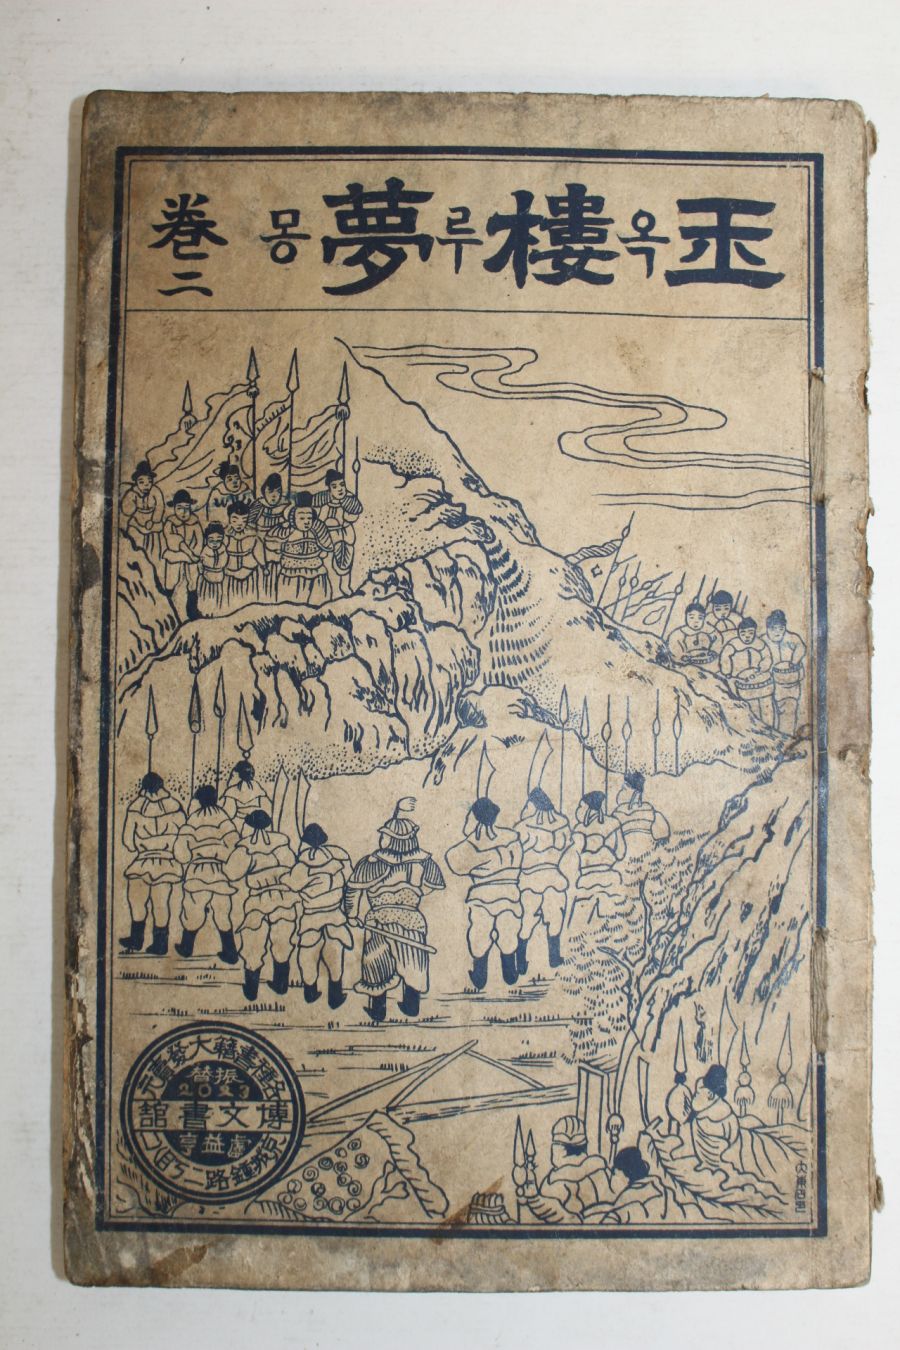 玉옥樓루夢몽
卷二
各種書籍大發賣元
振替
2023
博文書館
盧益亨
京城鍾路二丁目